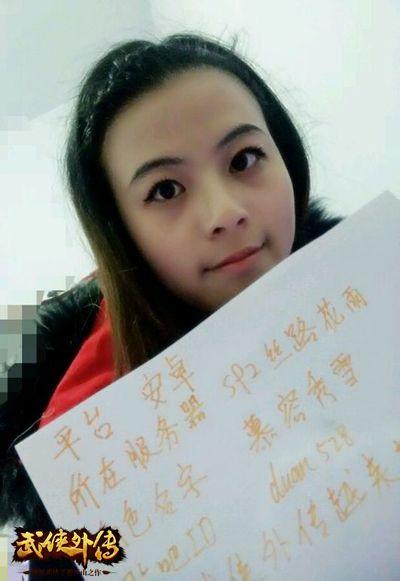 平台 安卓
所在服务器 SP2丝路花雨
色名字 慕容秀雪
吧ID duan528
侠外传越来
武侠外传